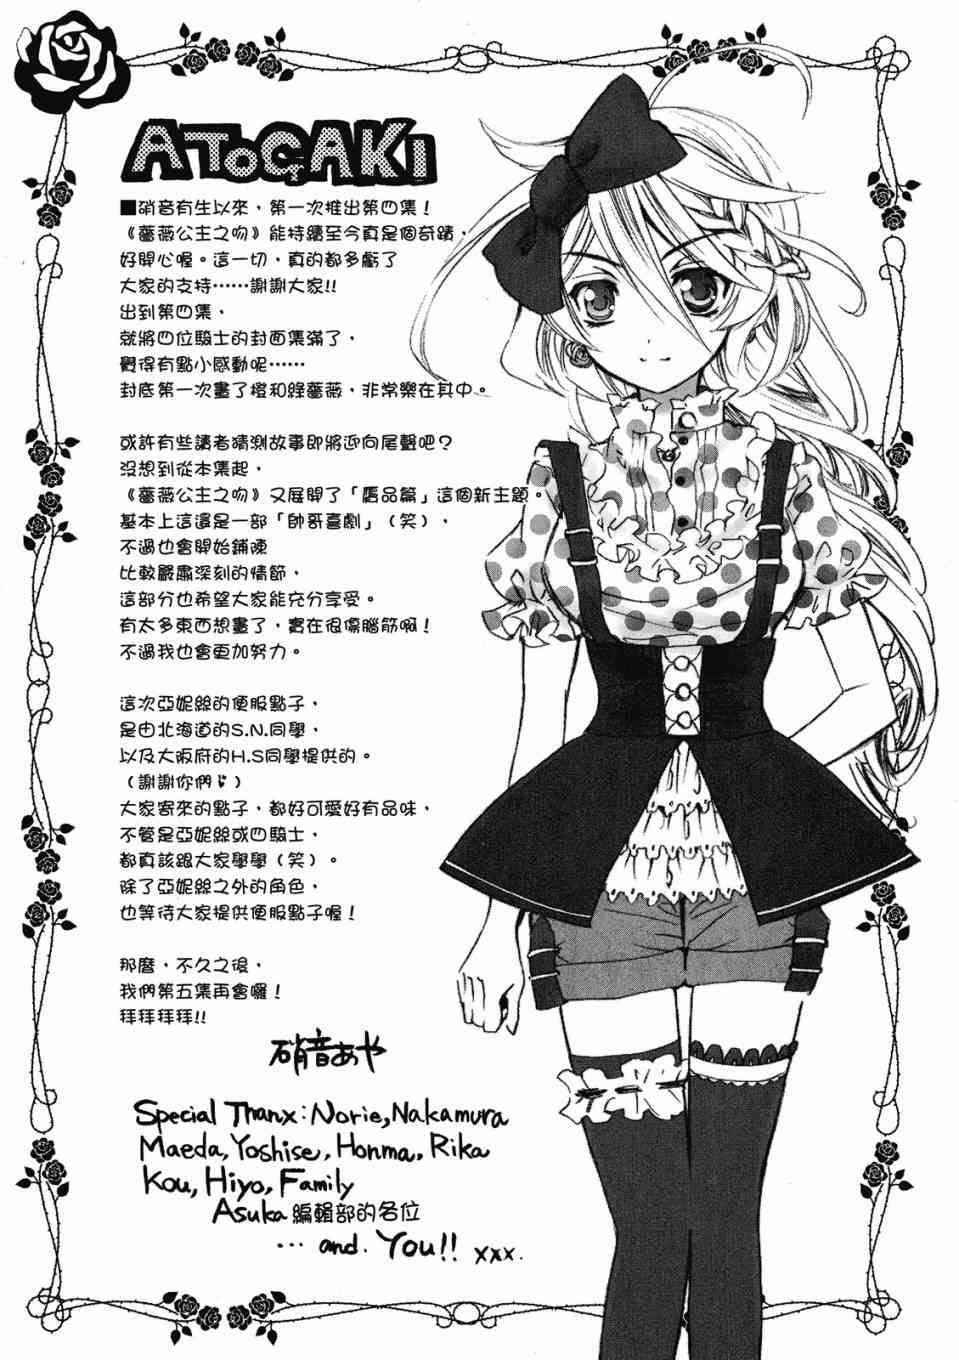 ATOGAKI
■硝音有生以來，第一次推出第四集！
《薔薇公主之吻》能持續至今真是個奇蹟，
好開心喔。這一切，真的都多虧了
大家的支持⋯⋯謝謝大家!!
出到第四集，
就將四位騎士的封面集滿了，
覺得有點小感動呢⋯⋯
封底第一次畫了橙和綠薔薇，非常樂在其中。
或許有些讀者猜測故事即將迎向尾聲吧？
沒想到從本集起，
《薔薇公主之吻》又展開了「贗品篇」這個新主題。
基本上這還是一部「帥哥喜劇」（笑），
不過也會開始鋪陳
比較嚴肅深刻的情節，
這部分也希望大家能充分享受。
有太多東西想畫了，實在很傷腦筋啊！
不過我也會更加努力。
這次亞妮絲的便服點子，
是由北海道的S.N.同學，
以及大阪府的H.S同學提供的。
（謝謝你們♥）
大家寄來的點子，都好可愛好有品味，
不管是亞妮絲或四騎士，
都真該跟大家學學（笑）。
除了亞妮絲之外的角色，
也等待大家提供便服點子喔！
那麼，不久之後，
我們第五集再會囉！
拜拜拜拜!!
硝音あや
Special Thanx: Norie, Nakamura
Maeda, Yoshise, Honma, Rika
Kou, Hiyo, Family
Asuka編輯部的各位
... and. You!! xxx.